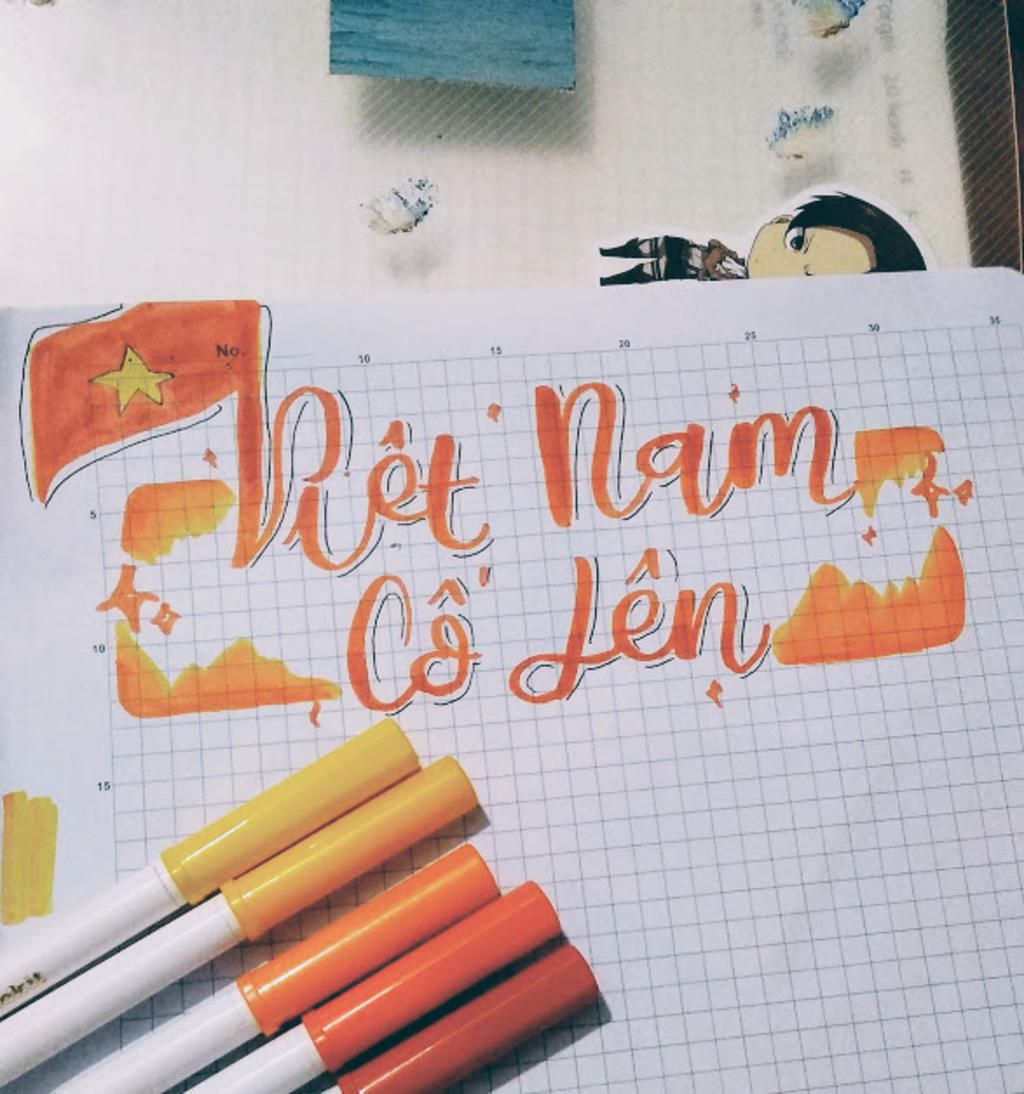 No.
10 15 20 25 30 35
Việt Nam
5
Cố Lên
10
15